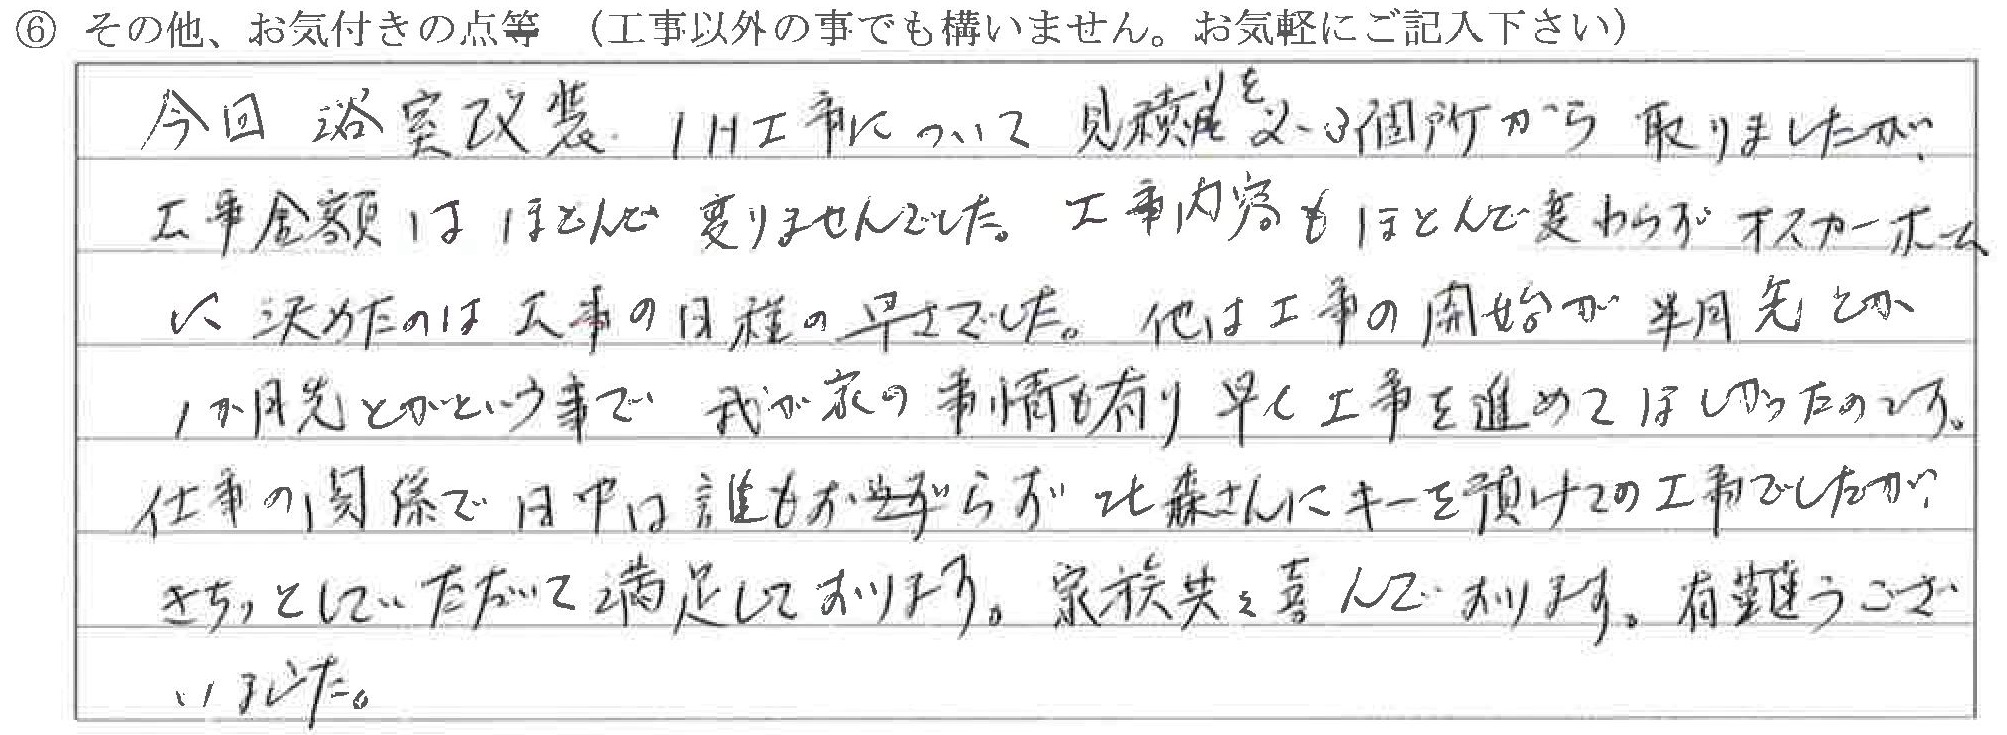 ⑥ その他、お気付きの点等 （工事以外の事でも構いません。お気軽にご記入下さい）
今回 浴室改装. IH工事について 見積りを2~3個所から 取りましたが、
工事金額は ほとんど 変りませんでした。工事内容も ほとんど変わらず オスカーホーム
に 決めたのは 工事の日程の早さでした。他は工事の開始が 半月先とか
1か月先とかという事で 我が家の事情も有り 早く工事を進めてほしかったのです。
仕事の関係で日中は誰もおらず 北森さんにキーを預けての工事でしたが、
きちっとしていただいて満足しております。家族共々喜んでおります。有難うござ
いました。